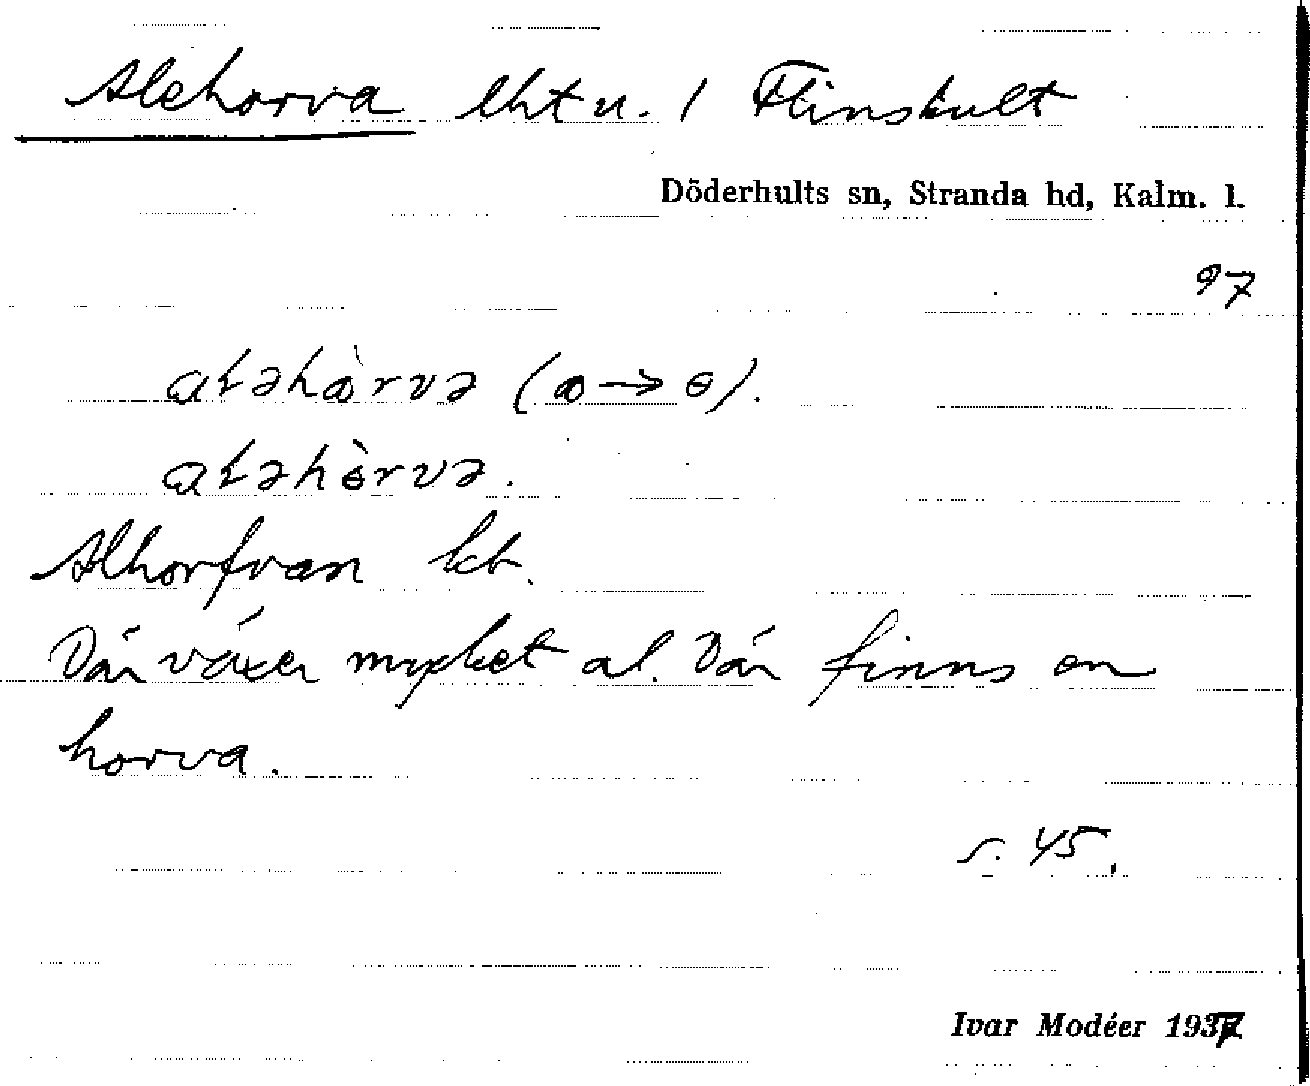 Alehorva lht u. / Flinshult
Döderhults sn, Stranda hd, Kalm. l.
97
aɫəhàrvə (ɑ → ɵ).
aɫəhɵ̀rvə.
Alhorfvan kb.
Där växer mycket al. Där finns en
horva.
s. 45.
Ivar Modéer 1937